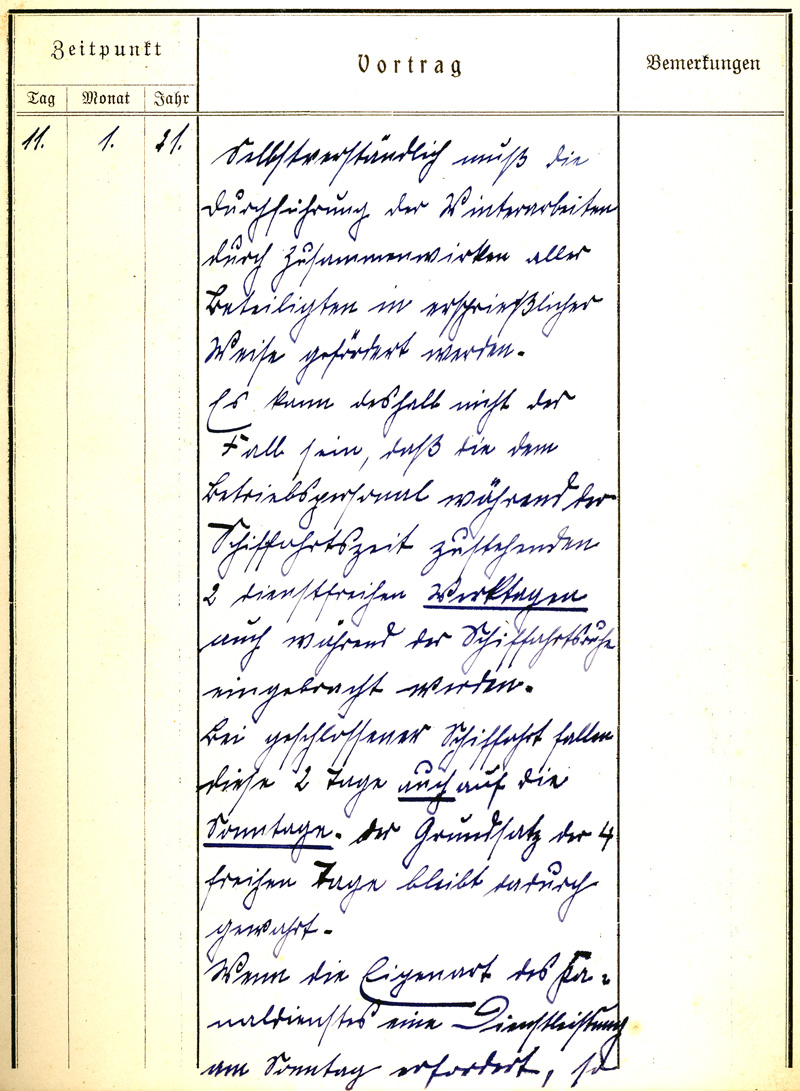 Zeitpunkt Vortrag Bemerkungen
Tag Monat Jahr
11. 1. 21. Selbstverständlich muß die
Durchführung der Winterarbeiten
durch Zusammenwirken aller
Beteiligten in ersprießlicher
Weise gefördert werden.
Es kann deshalb nicht der
Fall sein, daß die dem
Betriebspersonal während der
Schiffahrtszeit zustehenden
2 dienstfreihen Werktagen
auch während der Schiffahrtsruhe
eingebracht werden.
Bei geschlossener Schiffahrt fallen
diese 2 Tage auch auf die
Sonntage. Der Grundsatz der 4
freihen Tage bleibt dadurch
gewahrt.
Wenn die Eigenart des Ka-
naldienstes eine Dienstleistung
am Sonntag erfordert, so